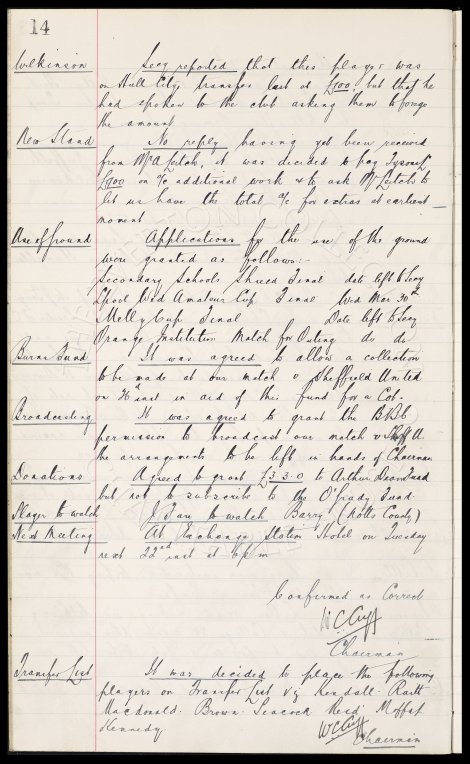 14
Wilkinson Secy reported that this player was
on Hull City, transfer list at £500, but that he
had spoken to the club asking them to forego
the amount
New Stand No reply having yet been received
from Mr A Leitch, it was decided to pay Tysons
on a/c additional work & to ask Mr Leitch to
let us have the total a/c for extras at earliest
moment
Use of ground Applications for the use of the ground
were granted as follows:-
Secondary Schools Shield Final date left to Secy
L'pool Wed Amateur Cup Final Wed Mar 30th
Melly Cup Final Date left to Secy
Orange Institution Match for Outing do do
Burns Fund It was agreed to allow a collection
to be made at our match v Sheffield United
on inst in aid of this fund for a Col.
Broadcasting It was agreed to grant the B.B.C.
permission to broadcast our match v Sheff U.
the arrangements to be left in hands of Chairman
Donations Agreed to grant £3.3.0 to Arthur Dean Fund
but not to subscribe to the O'Grady Fund
Player to watch J. Farr to watch Barry (Notts County)
Next Meeting At Exchange Station Hotel on Tuesday
next 22nd inst at 6 pm
Confirmed as Correct
W C Cuff
Chairman
Transfer List It was decided to place the following
players on Transfer List viz Kendall. Raitt
Macdonald. Brown. Peacock Reid, Moffat
Kennedy.
W C Cuff
Chairman